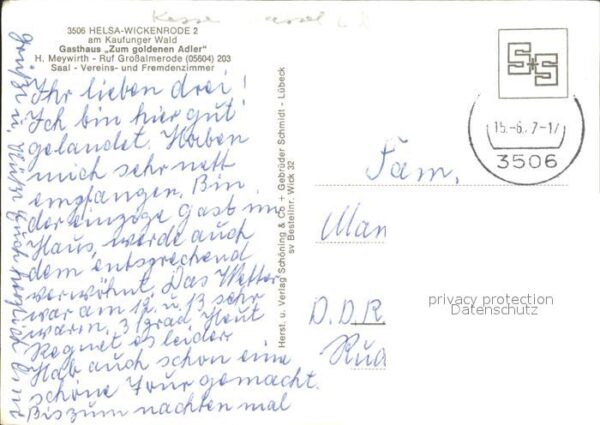 3506 HELSA-WICKENRODE 2
am Kaufunger Wald
Gasthaus „Zum goldenen Adler"
H. Meywirth - Ruf Großalmerode (05604) 203
Saal - Vereins- und Fremdenzimmer
Ihr lieben drei!
Ich bin hier gut
gelandet. Haben
mich sehr nett
empfangen. Bin
der einzige Gast im
Haus, werde auch
dem entsprechend
verwöhnt. Das Wetter
war am 12. u. 13 sehr
warm, 31 grad. Heut
Regnet es leider
Hab auch schon eine
schöne Tour gemacht.
Bis zum nachten mal
grüßt u. küßt Euch herzlich
Herst. u. Verlag Schöning & Co + Gebrüder Schmidt - Lübeck
sv Bestellnr. Wick 32
S+S
15.-6. 7-17
3506
Fam.
Man
D.D.R.
Rud
privacy protection
Datenschutz